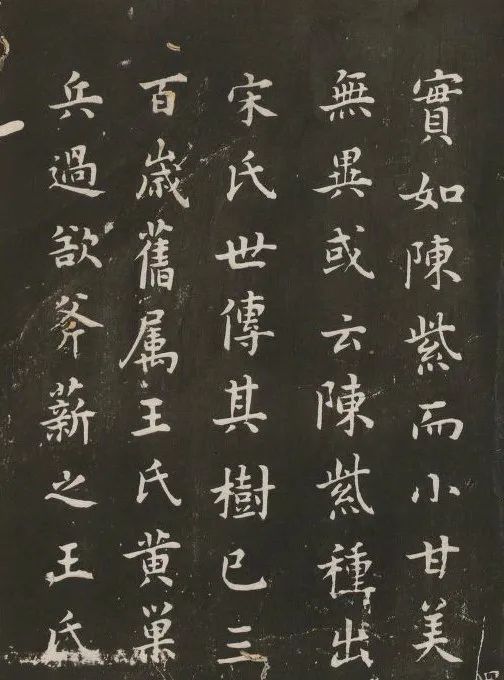 實如陳紫而小甘美
無異或云陳紫種出
宋氏世傳其樹已三
百歲舊属王氏黄巢
兵過欲斧薪之王氏